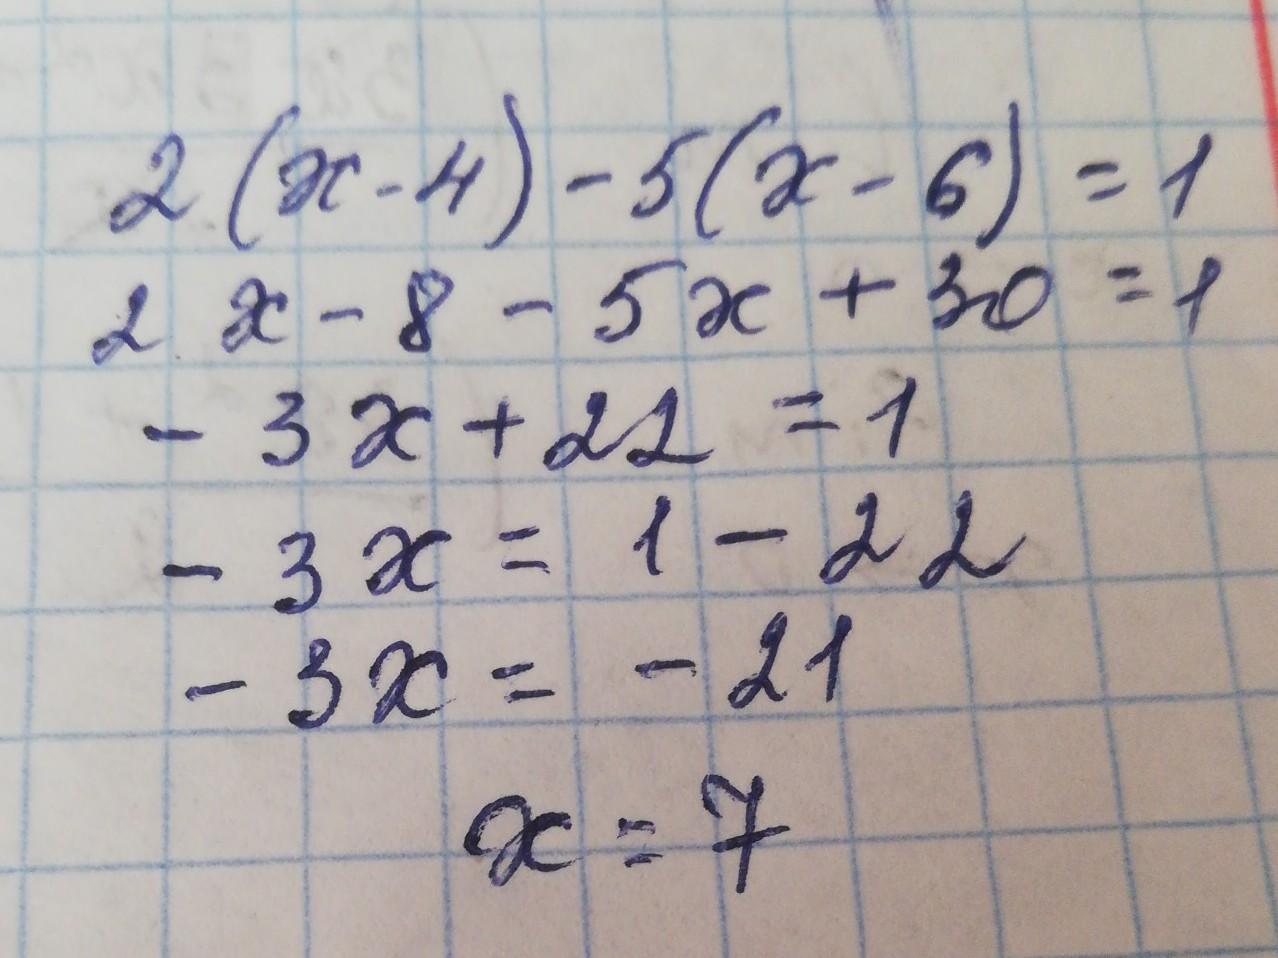 2(x-4)-5(x-6)=1
2x-8-5x+30=1
-3x+22=1
-3x=1-22
-3x=-21
x=7